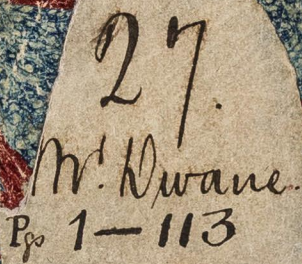 27.
Wr. Dwane.
Pgs 1—113